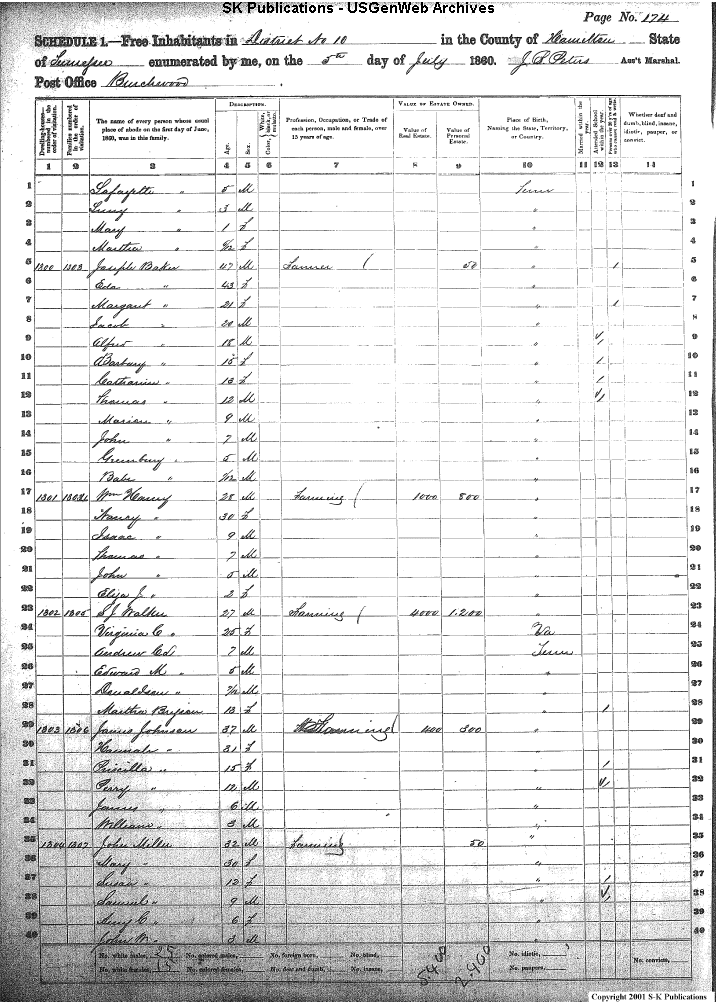 SK Publications - USGenWeb Archives
Page No. 174
SCHEDULE 1.—Free Inhabitants in District No 10 in the County of Hamilton State
of Tennessee enumerated by me, on the 5th day of July 1860. J. P. Peters Ass't Marshal.
Post Office Birchwood
Dwelling-houses—numbered in the order of visitation.
Families numbered in the order of visitation.
The name of every person whose usual place of abode on the first day of June, 1860, was in this family.
DESCRIPTION.
Age.
Sex.
Color, White, black, or mulatto.
Profession, Occupation, or Trade of each person, male and female, over 15 years of age.
VALUE OF ESTATE OWNED.
Value of Real Estate.
Value of Personal Estate.
Place of Birth, Naming the State, Territory, or Country.
Married within the year.
Attended School within the year.
Whether deaf and dumb, blind, insane, idiotic, pauper, or convict.
1 2 3 4 5 6 7 8 9 10 11 12 13 14
1 Lafayette " 5 M Tenn 1
2 " 3 M " 2
3 Mary " 1 F " 3
4 Martha " F " 4
5 1300 1303 Joseph Baker 47 M Farmer 50 " 1 5
6 Eda " 43 F " 6
7 Margaret " 21 F " 1 7
8 Jacob " 20 M " 8
9 Alfred " 18 M " 1 9
10 Barbury " 15 F " 1 10
11 Catharine " 13 F " 1 11
12 Thomas " 12 M " 1 12
13 Marion " 9 M " 13
14 John " 7 M " 14
15 Greenbury " 5 M " 15
16 Babe " M " 16
17 1301 1304 Wm Haney 28 M Farming 1000 800 " 17
18 Nancy " 30 F " 18
19 Isaac " 9 M " 19
20 Thomas " 7 M " 20
21 John " 5 M " 21
22 Eliza J. " 2 F " 22
23 1302 1305 S J Walker 27 M Farming 4000 1.200 " 23
24 Virginia C " 25 F Va 24
25 Andrew Ed. 7 M Tenn 25
26 Edward M " 5 M " 26
27 Donaldson " M " 27
28 Martha 13 F " 1 28
29 1303 1306 James Johnson 37 M Farming 400 300 " 29
30 Hannah " 31 F " 30
31 Priscilla " 15 F " 1 31
32 Perry " 12 M " 1 32
33 James " 6 M " 33
34 William " 3 M " 34
35 1304 1307 John Miller 32 M Farming 50 " 35
36 Mary " 30 F " 36
37 Susan " 12 F " 1 37
38 Samuel " 9 M " 1 38
39 C. " 6 F " 39
40 John W. " 3 M " 40
No. white males, 25 No. colored males, No. foreign born, No. blind, 5400 2.400 No. idiotic,
No. white females, 15 No. colored females, No. deaf and dumb, No. insane, No. paupers, No. convicts,
Copyright 2001 S-K Publications